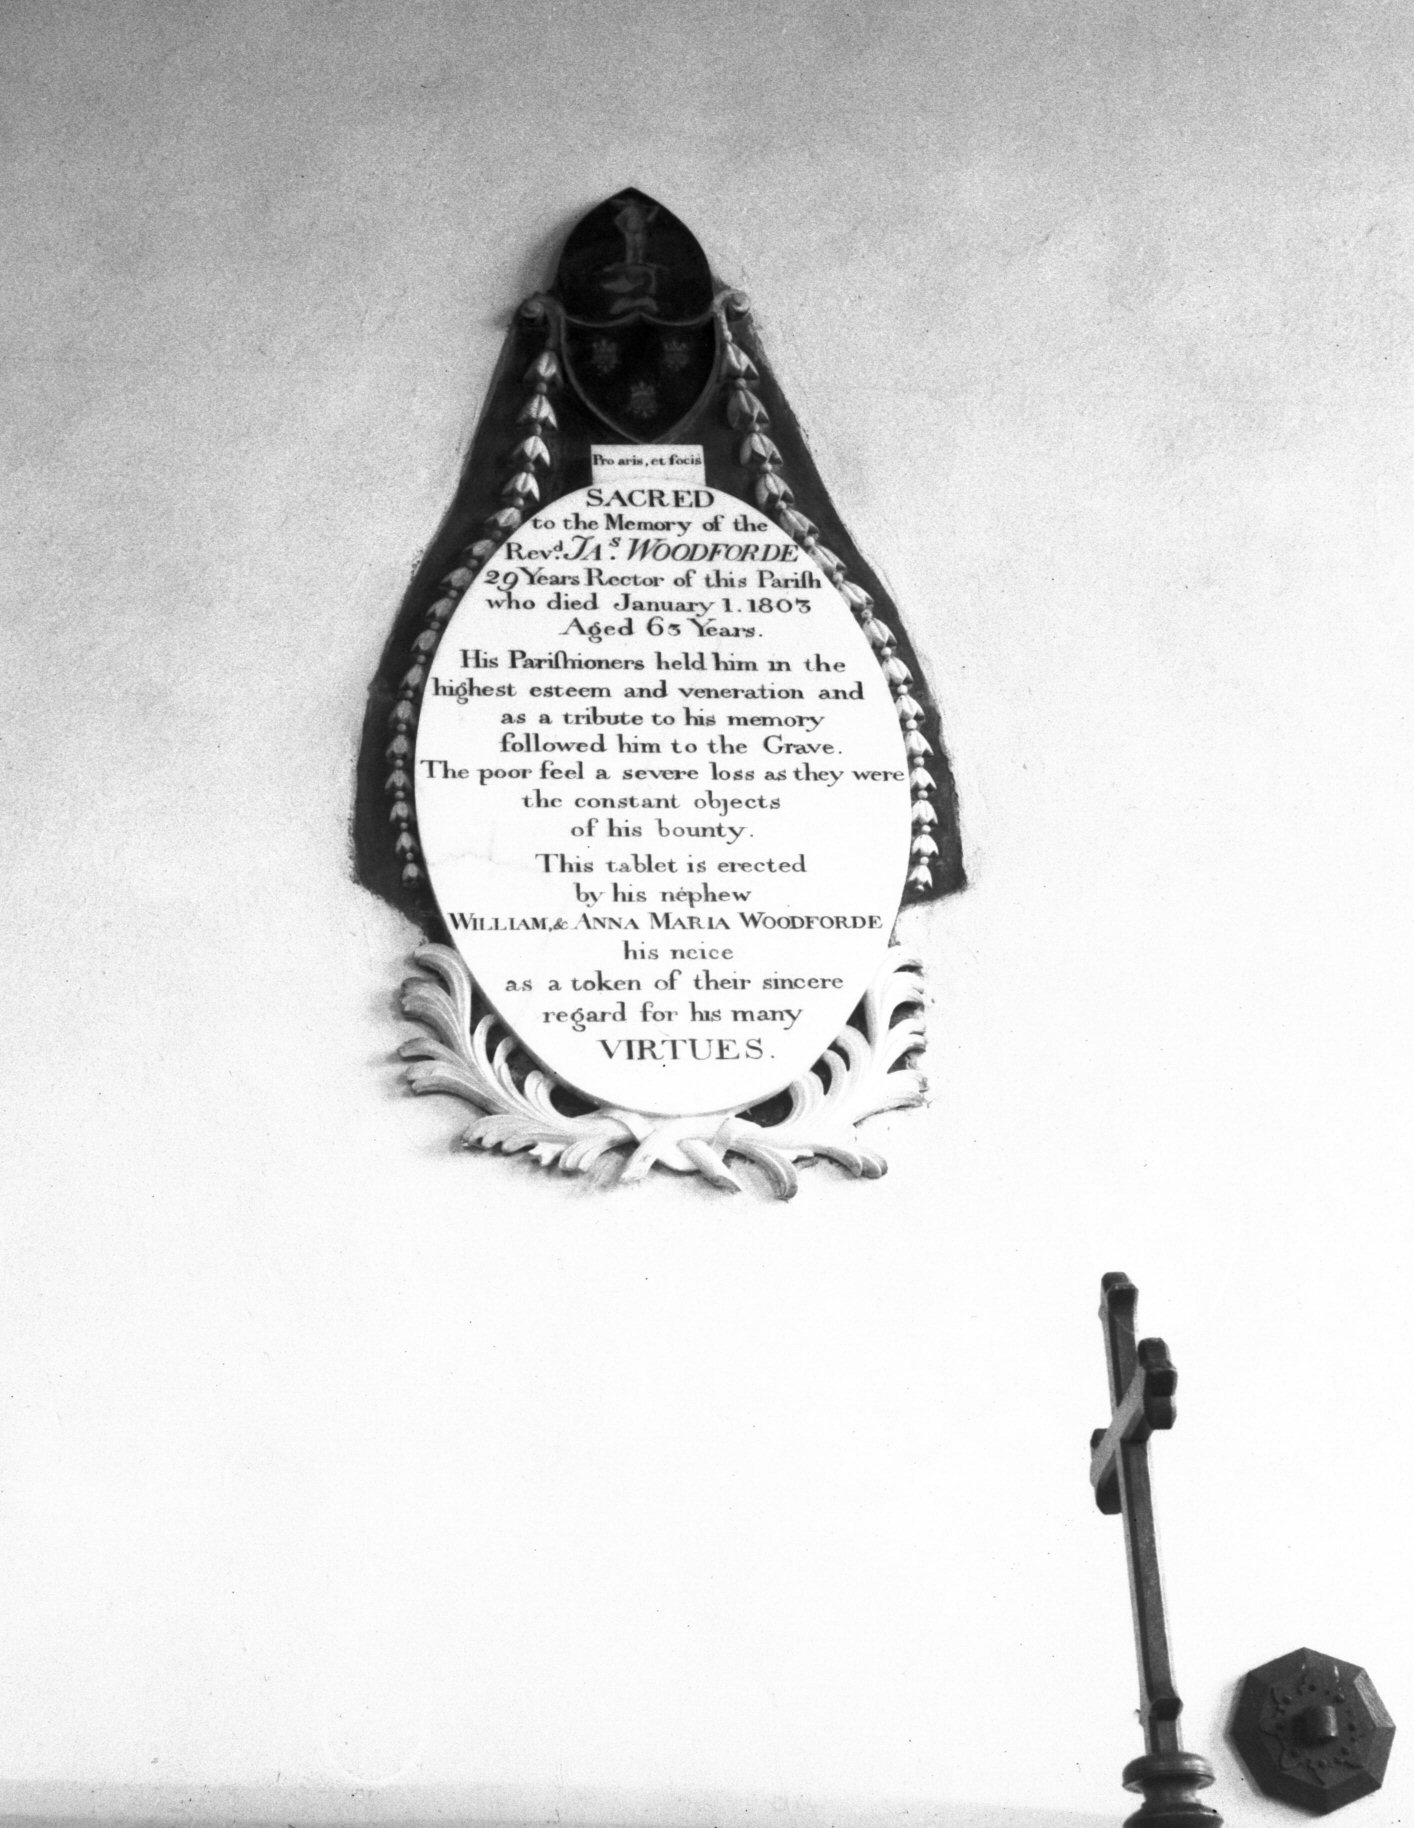 Pro aris, et focis
SACRED
to the Memory of the
Revd. JAs. WOODFORDE
29 Years Rector of this Pariſh
who died January 1. 1803
Aged 63 Years.
His Pariſhioners held him in the
highest esteem and veneration and
as a tribute to his memory
followed him to the Grave.
The poor feel a severe loss as they were
the constant objects
of his bounty.
This tablet is erected
by his nephew
WILLIAM, & ANNA MARIA WOODFORDE
his neice
as a token of their sincere
regard for his many
VIRTUES.